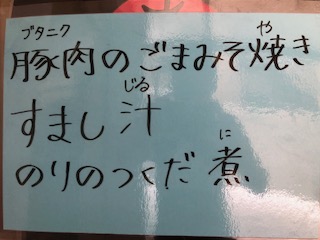 ブタニク や
豚肉のごまみそ焼き
じる
すまし汁
に
のりのつくだ煮